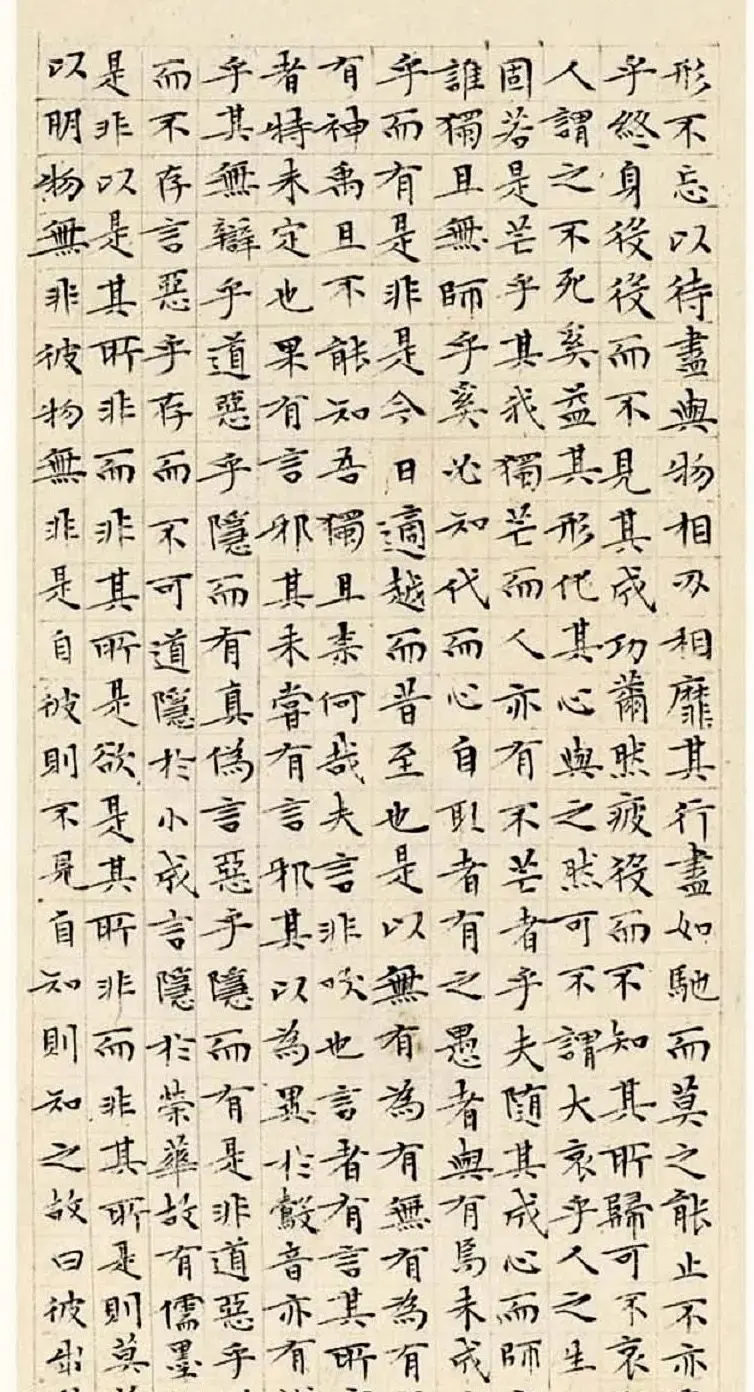 形不忘以待盡與物相刃相靡其行盡如馳而莫之能止不亦
乎終身役役而不見其成功薾然疲役而不知其所歸可不哀
人謂之不死奚益其形化其心與之然可不謂大哀乎人之生
固若是芒乎其我獨芒而人亦有不芒者乎夫隨其成心而師
誰獨且無師乎奚必知代而心自取者有之愚者與有焉未成
乎而有是非是今日適越而昔至也是以無有為有無有為有
有神禹且不能知吾獨且柰何哉夫言非吹也言者有言其所
者特未定也果有言邪其未嘗有言邪其以為異於鷇音亦有
乎其無辯乎道惡乎隱而有真偽言惡乎隱而有是非道惡乎
而不存言惡乎存而不可道隱於小成言隱於榮華故有儒墨
是非以是其所非而非其所是欲是其所非而非其所是則莫
以明物無非彼物無非是自彼則不見自知則知之故曰彼出